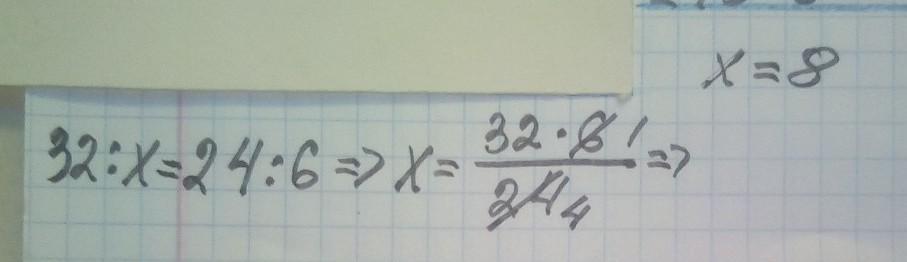 x=8
32:x=24:6=>x=32·6 1/24 4=>